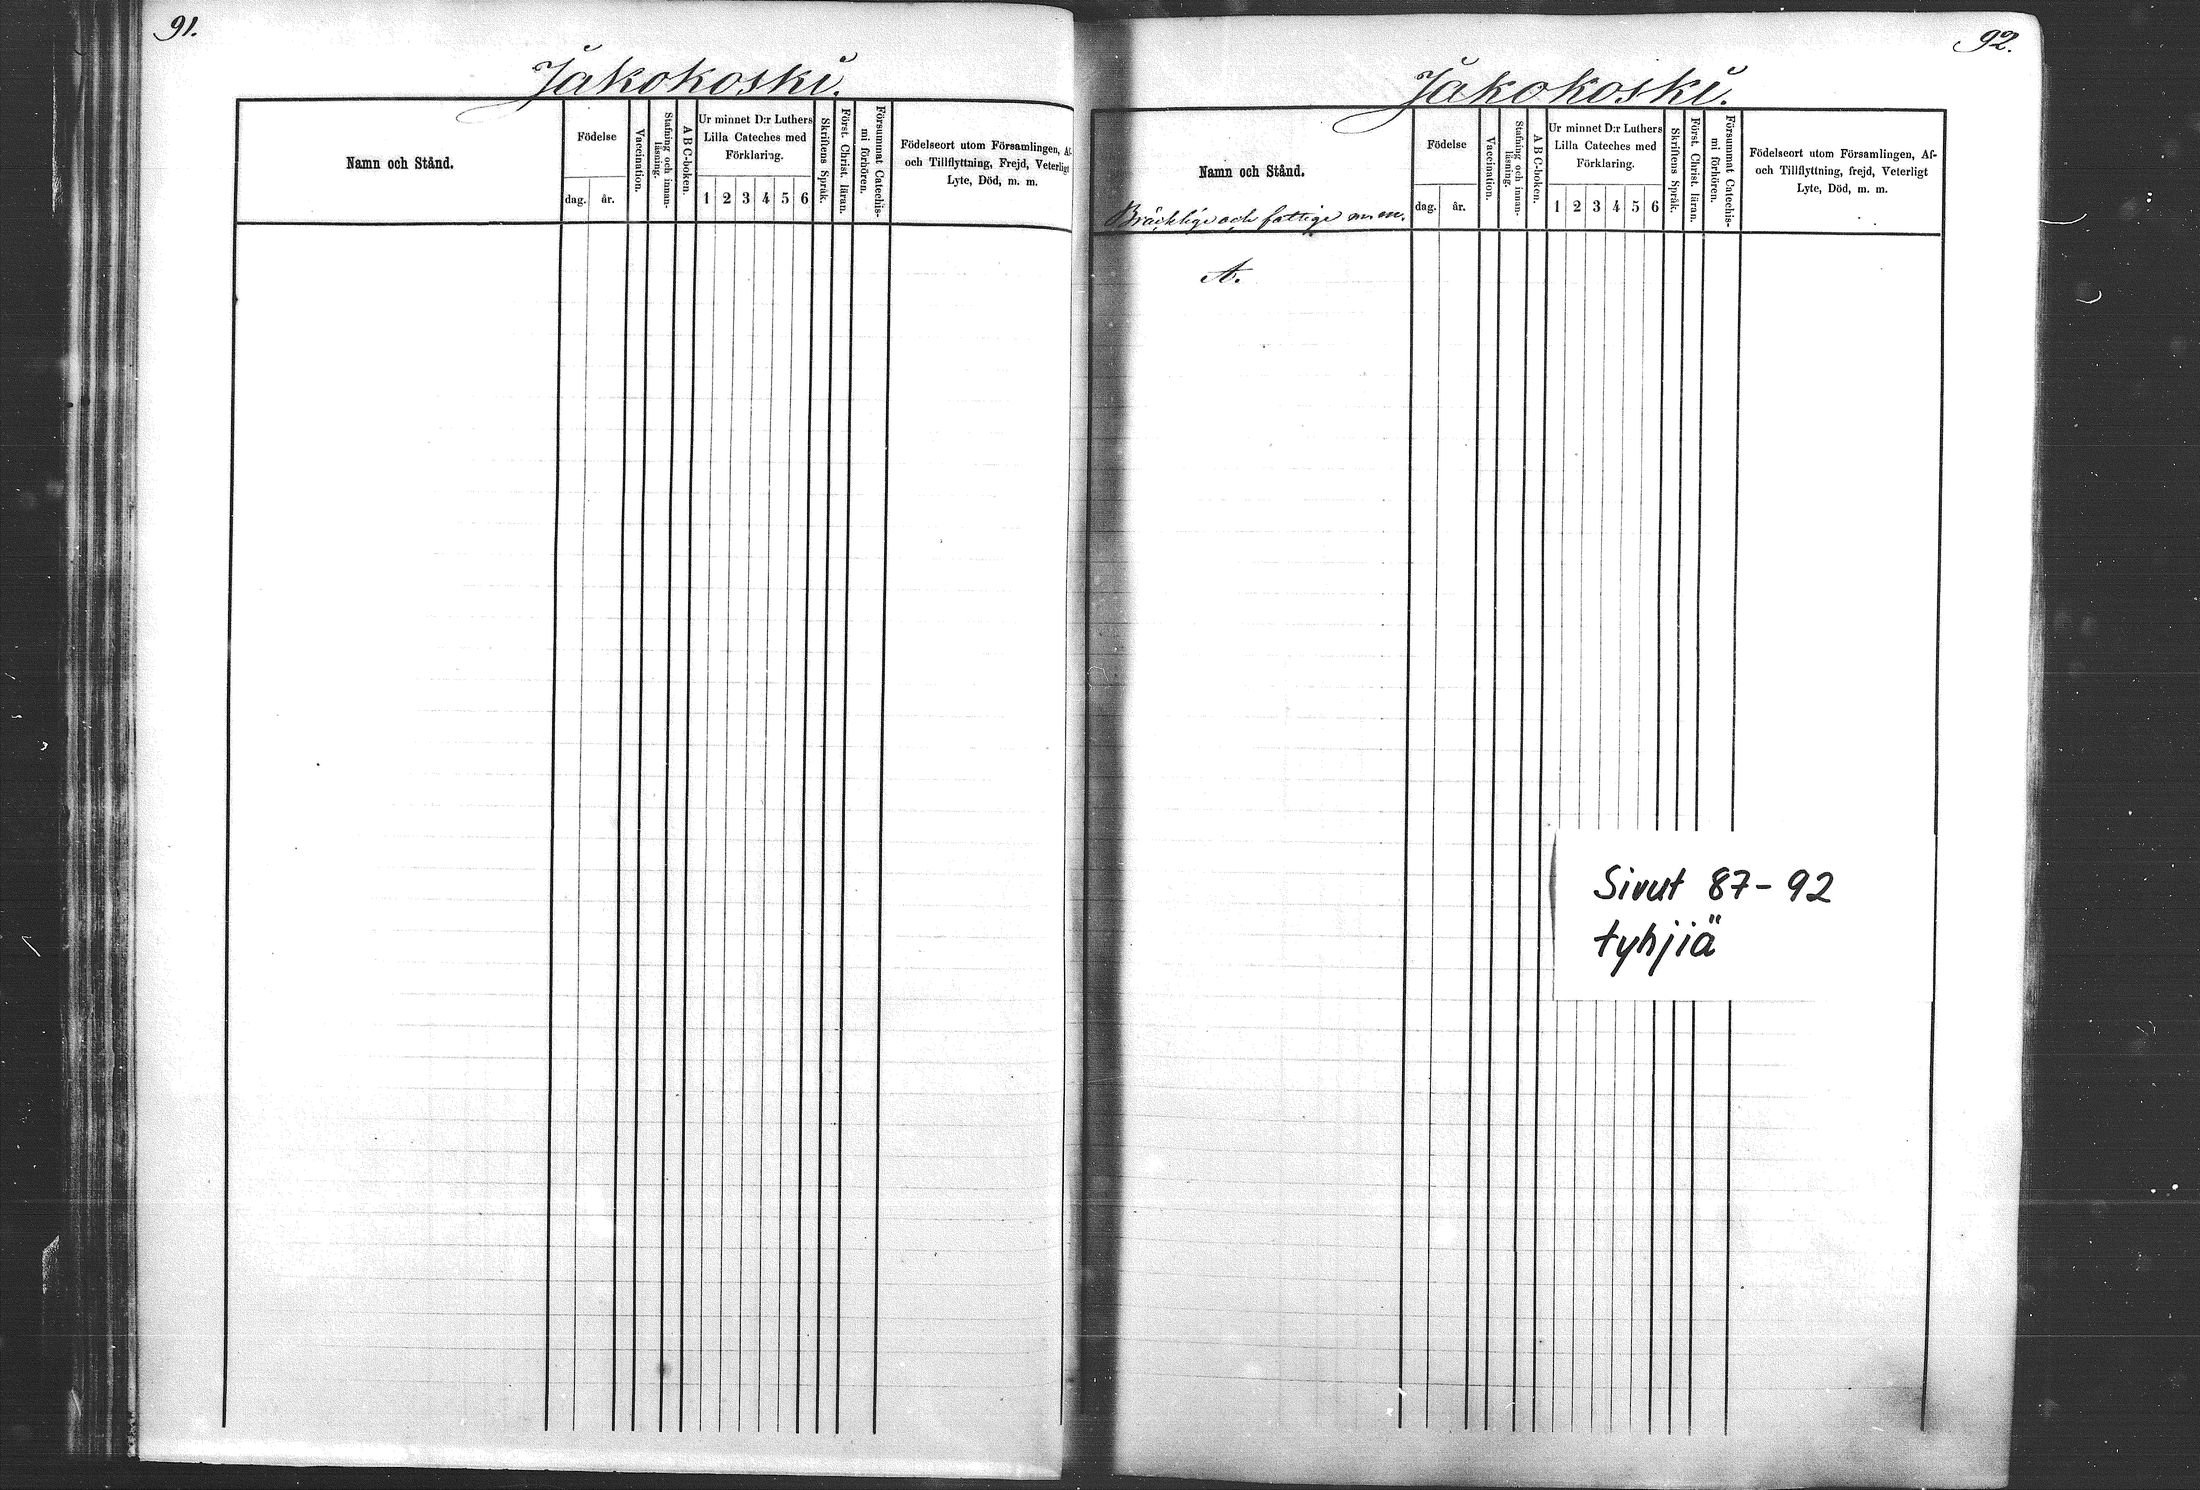 91.
Jakokoski.
Namn och Stånd.
Födelse
dag.
år.
Vaccination.
Stafning och innan-
läsning.
A B C-boken.
Ur minnet D:r Luthers
Lilla Cateches med
Förklaring.
1 2 3 4 5 6
Skriftens Språk.
Först. Christ. läran.
Försummat Catechis-
mi förhören.
Födelseort utom Församlingen, Af-
och Tillflyttning, Frejd, Veterligt
Lyte, Död, m. m.
92.
Jakokoski.
Namn och Stånd.
Bräcklige och fattige m.m.
Födelse
dag.
år.
Vaccination.
Stafning och innan-
läsning.
A B C-boken.
Ur minnet D:r Luthers
Lilla Cateches med
Förklaring.
1 2 3 4 5 6
Skriftens Språk.
Först. Christ. läran.
Försummat Catechis-
mi förhören.
Födelseort utom Församlingen, Af-
och Tillflyttning, frejd, Veterligt
Lyte, Död, m. m.
A.
Sivut 87-92
tyhjiä